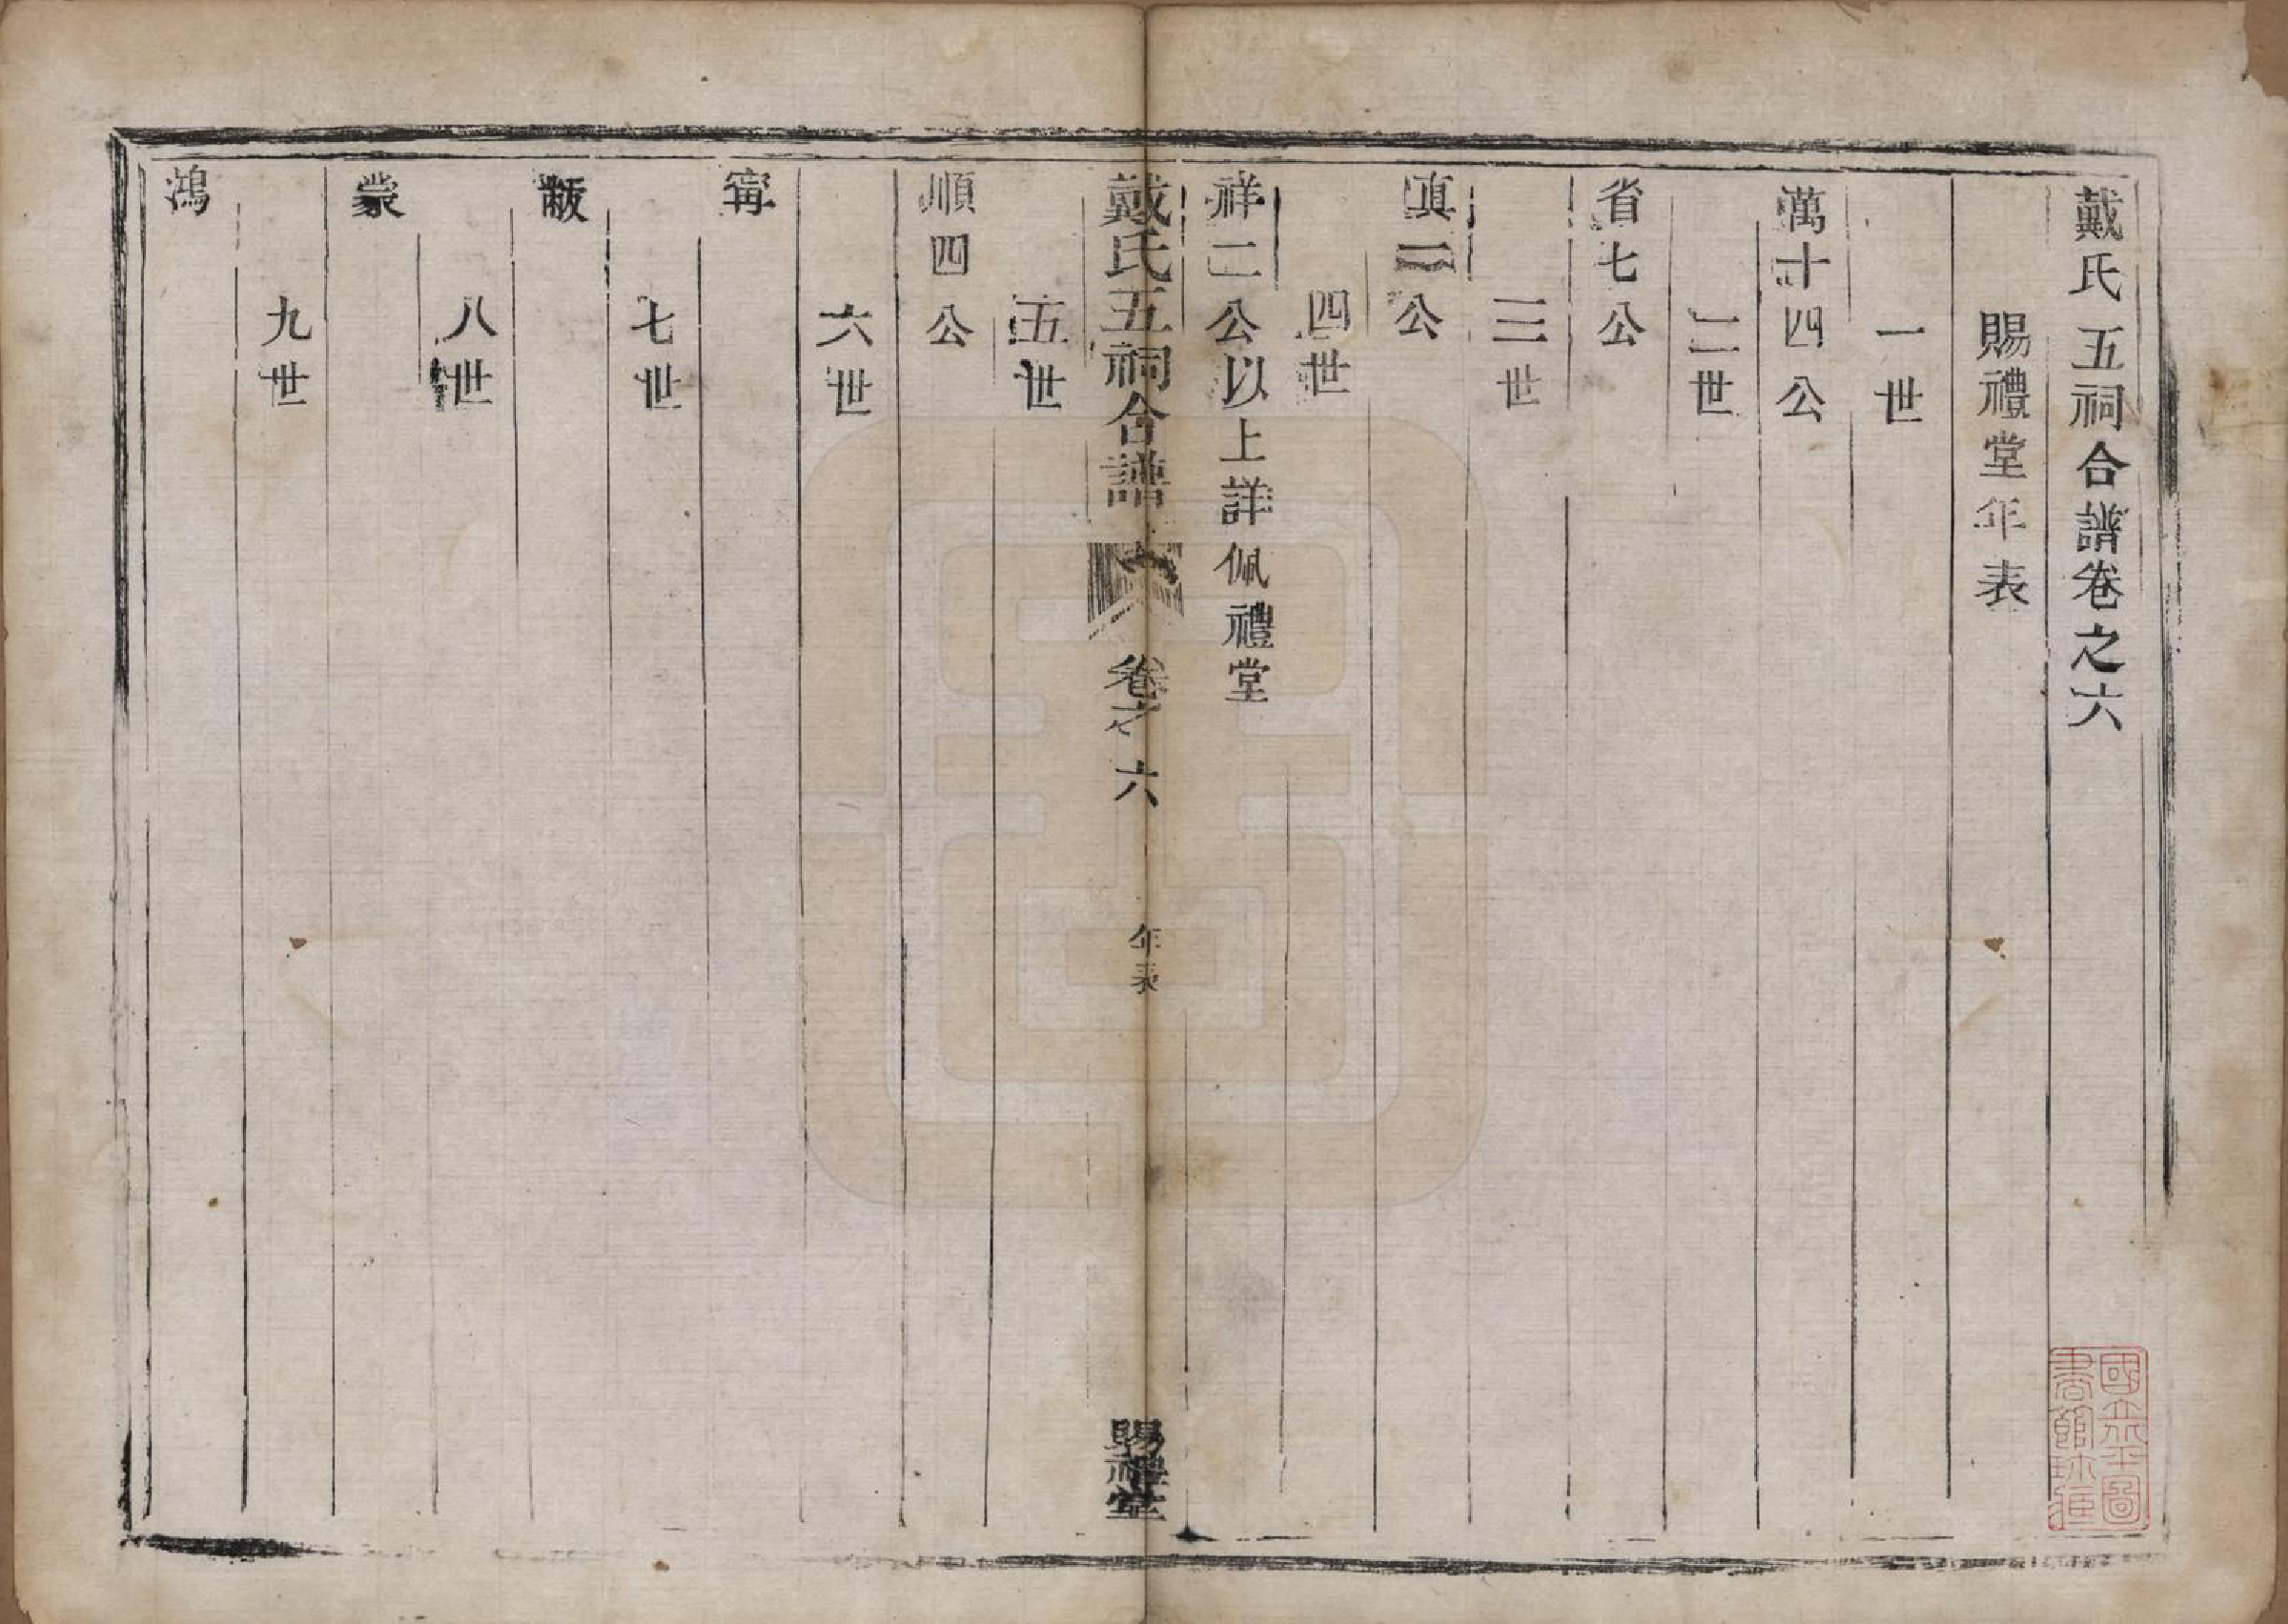 戴氏五祠合譜卷之六
賜禮堂年表
一世
萬十四公
二世
省七公
三世
眞二公
四世
祥二公以上詳佩禮堂
戴氏五祠合譜
卷之六
年表
賜禮堂
五世
順四公
六世
甯
七世
八世
蒙
九世
鴻
國立北平圖
書館珍藏